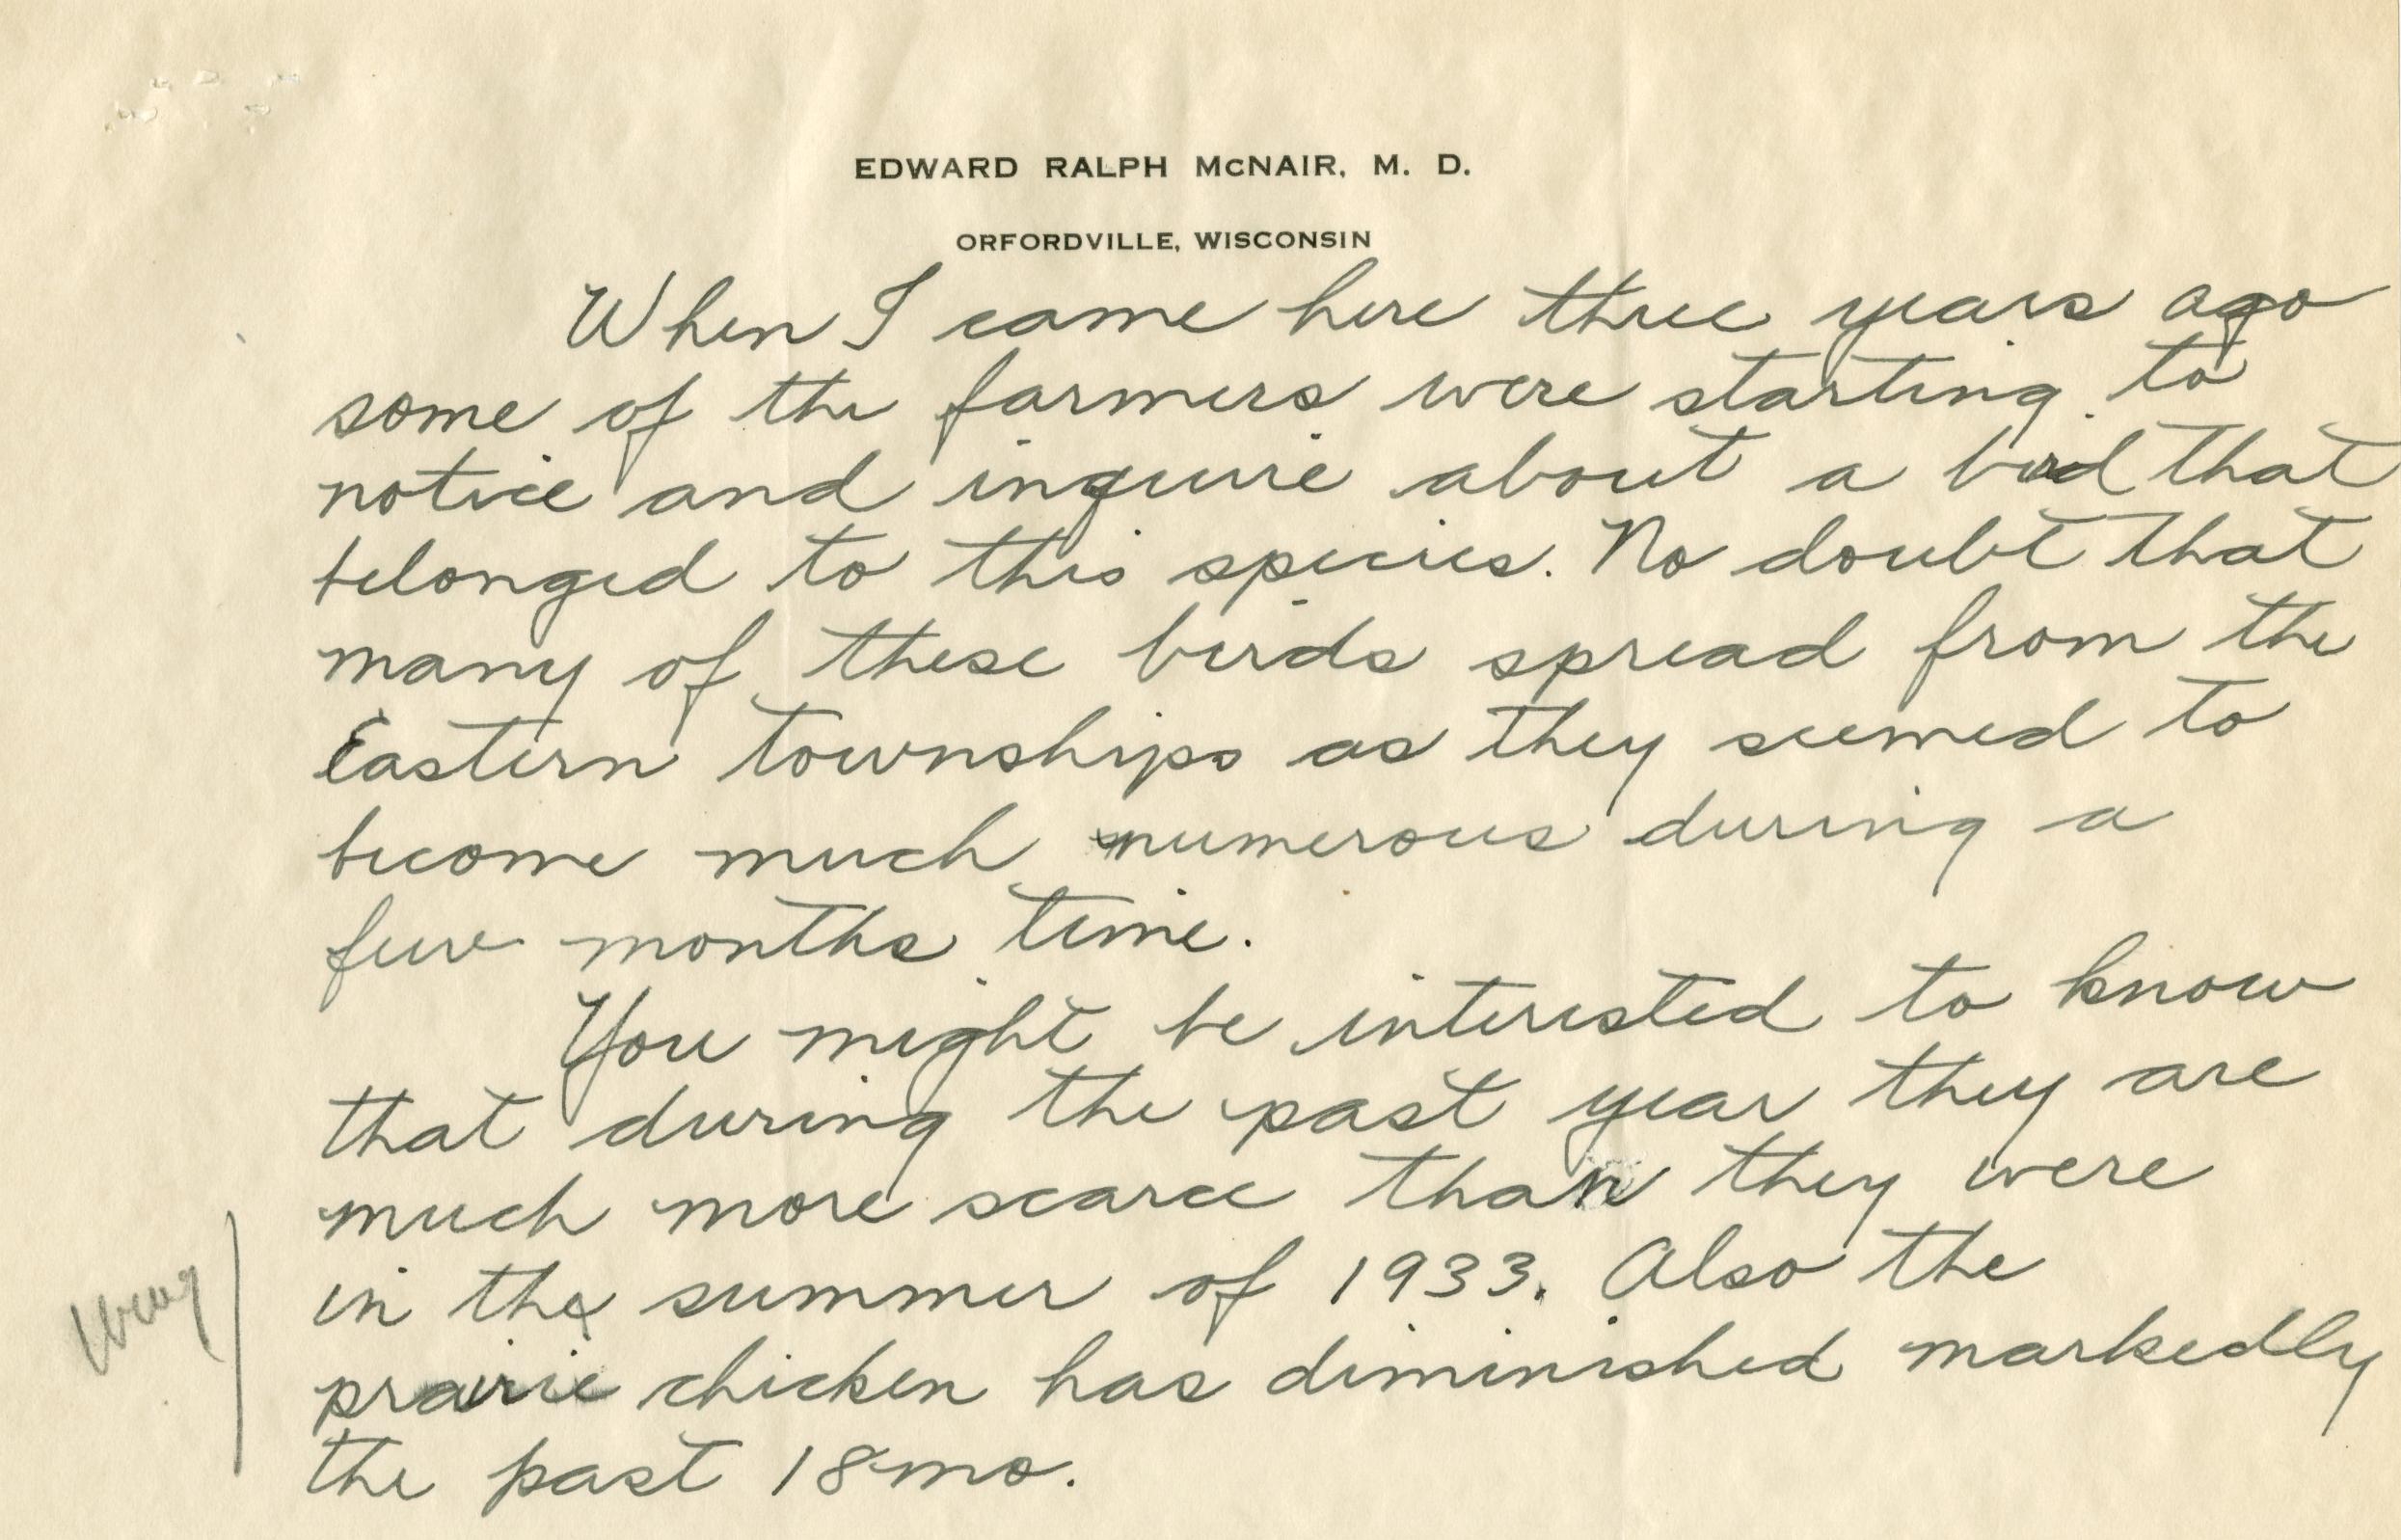 EDWARD RALPH McNAIR, M. D.
ORFORDVILLE, WISCONSIN
When I came here three years ago
some of the farmers were starting to
notice and inquire about a bird that
belonged to this species. No doubt that
many of these birds spread from the
Eastern townships as they seemed to
become much numerous during a
few months time.
You might be interested to know
that during the past year they are
much more scarce than they were
in the summer of 1933. Also the
prairie chicken has diminished markedly
the past 18 mo.